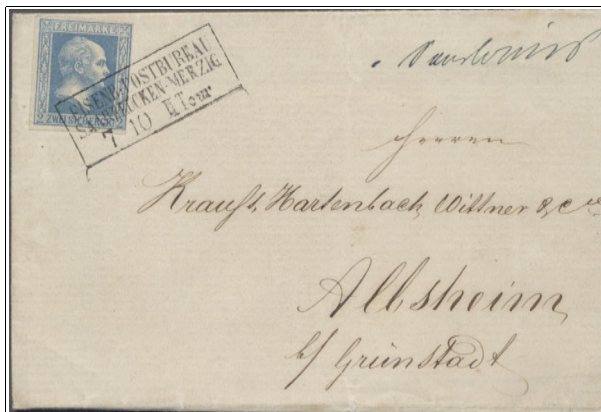 FREIMARKE
2 ZWEI SILBERGR. 2
EISENB. POSTBUREAU
SAARBRÜCKEN-MERZIG
7 10 II Tour
Saarlouis
Herren
Krauft, Hartenbach, Wittner & Cie
Albsheim
b/ Grünstadt